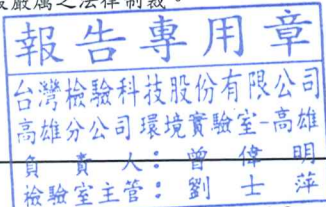 嚴厲之法律制裁。
報告專用章
台灣檢驗科技股份有限公司
高雄分公司環境實驗室-高雄
負責人：曾偉明
檢驗室主管：劉士萍